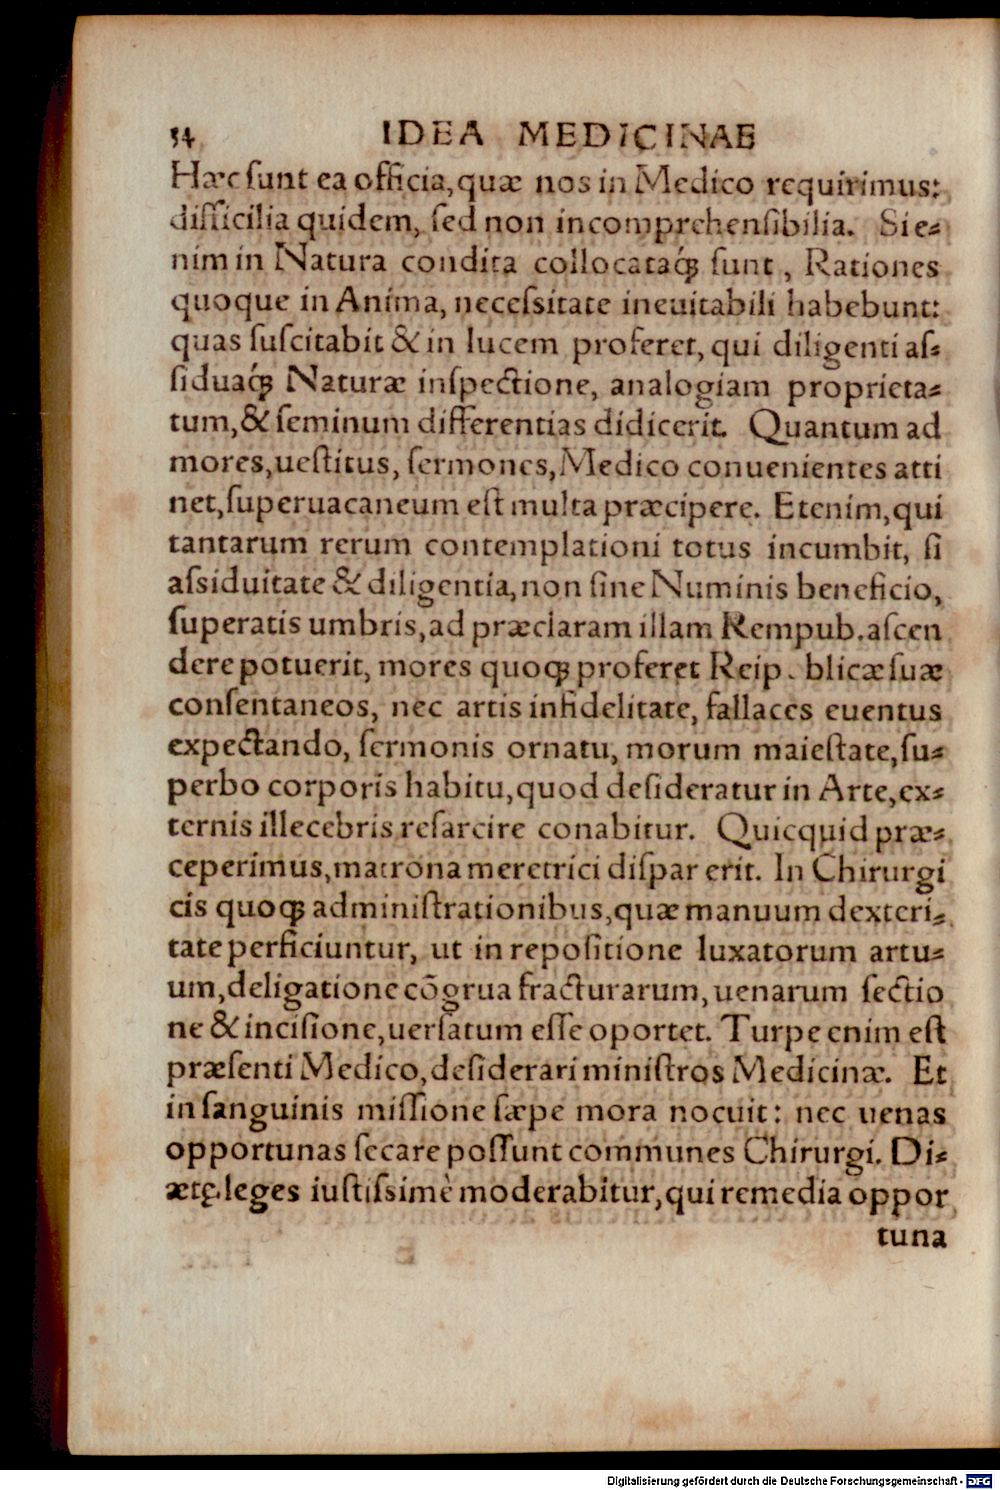 54 IDEA MEDICINAE
Hæc ſunt ea officia, quæ nos in Medico requirimus:
difficilia quidem, ſed non incomprehenſibilia. Si e⸗
nim in Natura condita collocataq́ꝫ ſunt, Rationes
quoque in Anima, neceſsitate ineuitabili habebunt:
quas ſuſcitabit & in lucem proferet, qui diligenti aſ⸗
ſiduaq́ꝫ Naturæ inſpectione, analogiam proprieta⸗
tum, & ſeminum differentias didicerit. Quantum ad
mores, ueſtitus, ſermones, Medico conuenientes atti
net, ſuperuacaneum eſt multa præcipere. Etenim, qui
tantarum rerum contemplationi totus incumbit, ſi
aſsiduitate & diligentia, non ſine Numinis beneficio,
ſuperatis umbris, ad præclaram illam Rempub. aſcen
dere potuerit, mores quoqꝫ proferet Reip. blicæ ſuæ
conſentaneos, nec artis infidelitate, fallaces euentus
expectando, ſermonis ornatu, morum maieſtate, ſu⸗
perbo corporis habitu, quod deſideratur in Arte, ex⸗
ternis illecebris reſarcire conabitur. Quicquid præ⸗
ceperimus, matrona meretrici diſpar erit. In Chirurgi
cis quoqꝫ adminiſtrationibus, quæ manuum dexteri⸗
tate perficiuntur, ut in repoſitione luxatorum artu⸗
um, deligatione cōgrua fracturarum, uenarum ſectio
ne & inciſione, uerſatum eſſe oportet. Turpe enim eſt
præſenti Medico, deſiderari miniſtros Medicinæ. Et
in ſanguinis miſſione ſæpe mora nocuit: nec uenas
opportunas ſecare poſſunt communes Chirurgi. Di⸗
ætę leges iuſtiſsimè moderabitur, qui remedia oppor
tuna
Digitalisierung gefördert durch die Deutsche Forschungsgemeinschaft - DFG